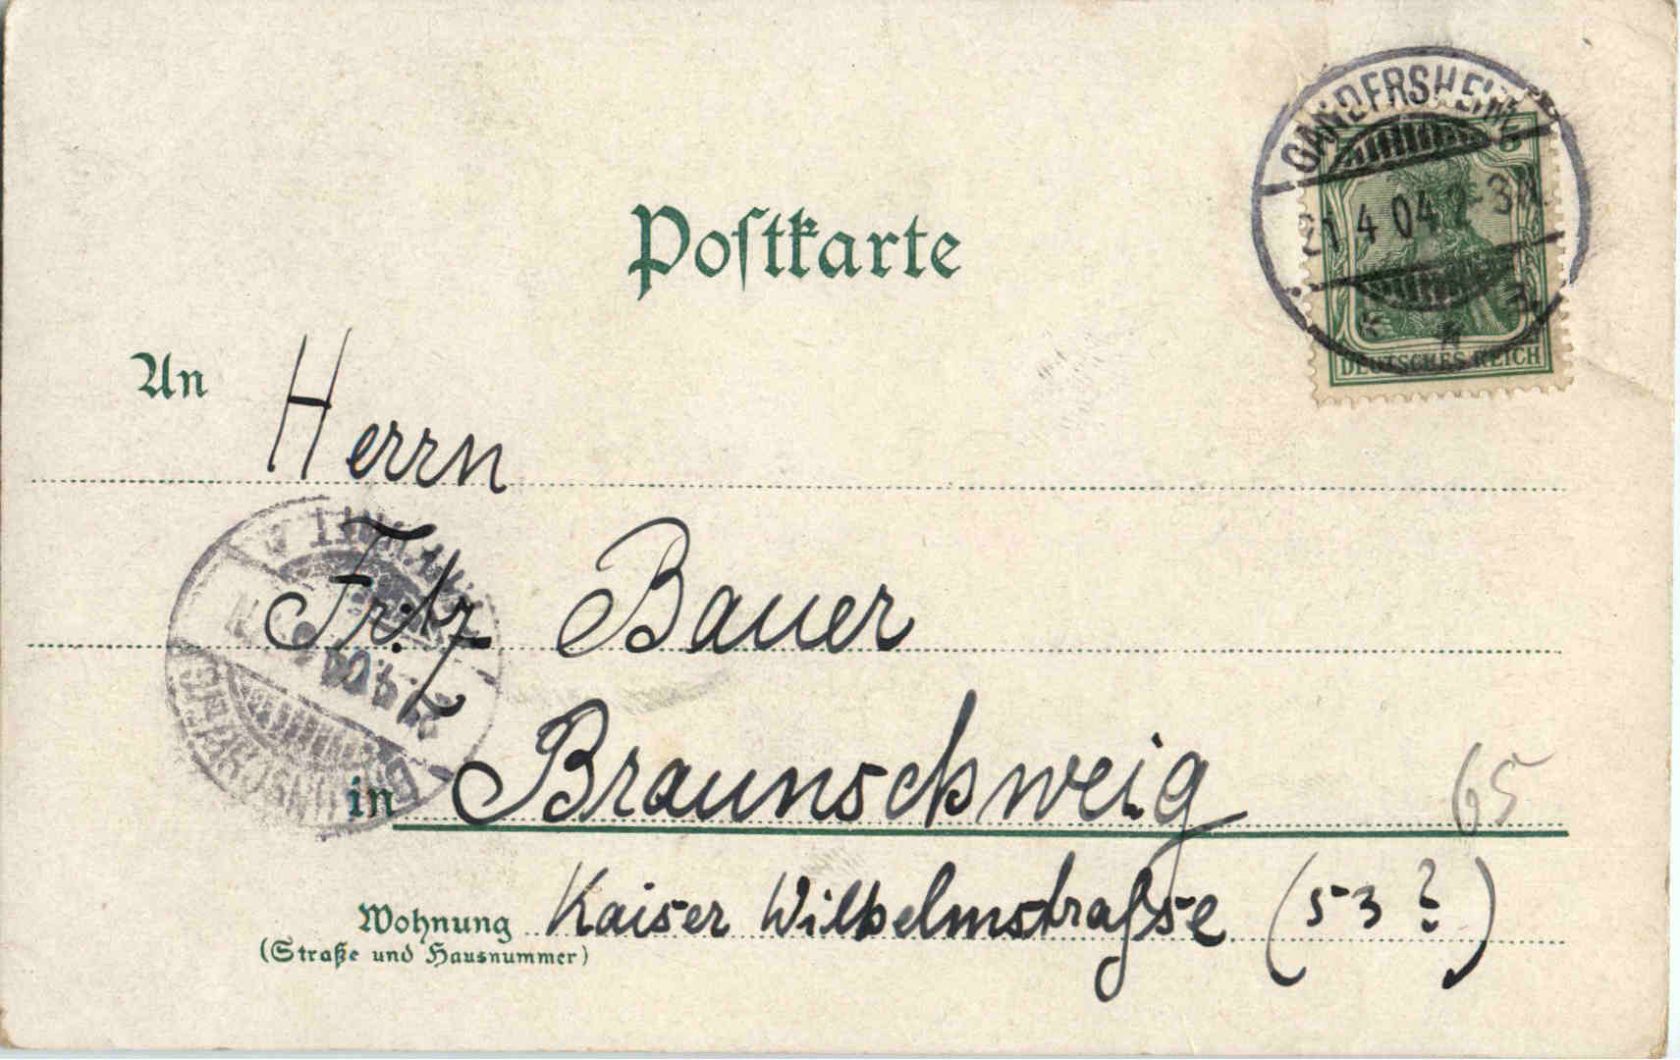 GANDERSHEIM
21 4 04
DEUTSCHES REICH
Postkarte
An Herrn
Fritz Bauer
in Braunschweig
65
Wohnung Kaiser Wilhelmstraſse (53?)
(Straße und Hausnummer)
BRAUNSCHWEIG